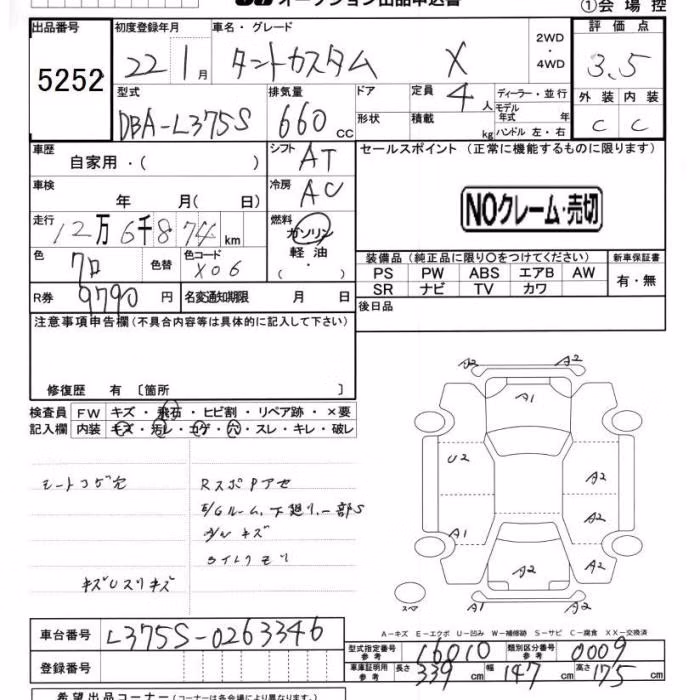 オークション出品申込書
①会場控
出品番号 5252
初度登録年月 22 1月
車名・グレード タントカスタム X
2WD・4WD
評価点 3.5
外装 C 内装 C
型式 DBA-L375S
排気量 660cc
ドア
形状
定員 4人
積載 kg
ディーラー・並行
モデル年式 年
ハンドル 左・右
車歴 自家用・( )
シフト AT
セールスポイント (正常に機能するものに限ります)
車検 年 月( 日)
冷房 AC
NOクレーム・売切
走行 12万6千874km
燃料 ガソリン 軽油 ( ・ )
色 クロ 色替 色コード X06
装備品 (純正品に限り○をつけてください)
新車保証書
PS PW ABS エアB AW
SR ナビ TV カワ
有・無
R券 9790円
名変通知期限 月 日
後日品
注意事項申告欄(不具合内容等は具体的に記入して下さい)
修復歴 有〔箇所 〕
検査員記入欄
FW キズ・飛石・ヒビ割・リペア跡・×要
内装 キズ・汚レ・コゲ・穴・スレ・キレ・破レ
シートコゲ穴
RスポPアセ
E/Gルーム、下廻り、一部S
キズUスリキズ
A2 A2
A1
U2
A2
A2
A1
A2
A2
A1 A2
スペア
A-キズ E-エクボ U-凹み W-補修跡 S-サビ C-腐食 XX-交換済
車台番号 L375S-0263346
型式指定番号 参考 16010
類別区分番号 参考 0009
登録番号
車庫証明用 参考 長さ 339cm 幅 147cm 高さ 175cm
希望出品コーナー(コーナーは各会場により異なります。)